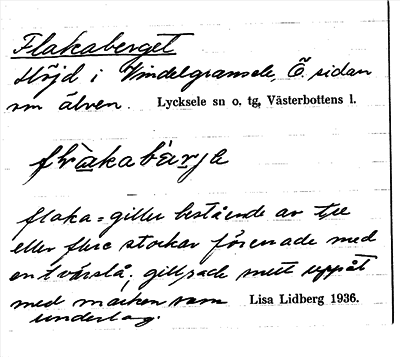 Flakaberget
Höjd i Vindelgransele, Ö. sidan
om älven. Lycksele sn o. tg, Västerbottens l.
flàkabærje
flaka = giller bestående av tre
eller flere stockar förenade med
en tvärslå; gillrade mitt uppåt
med marken som Lisa Lidberg 1936.
underlag.